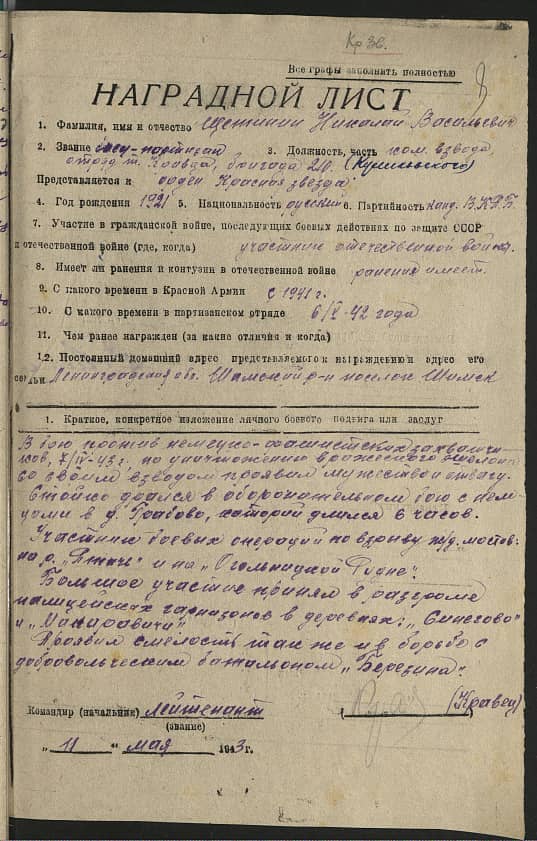 Кр Зв.
Все графы заполнить полностью
НАГРАДНОЙ ЛИСТ
1. Фамилия, имя и отчество Щетинин Николай Васильевич
2. Звание боец-партизан 3. Должность, часть ком. взвода
отряд т. Кравца, бригада 210 (Куликовского)
Представляется к орден Красная звезда
4. Год рождения 1921 5. Национальность русский 6. Партийность канд. В.К.П.Б
7. Участие в гражданской войне, последующих боевых действиях по защите СССР
и отечественной войне (где, когда) участник отечественной войны.
8. Имеет ли ранения и контузии в отечественной войне ранения имеет.
9. С какого времени в Красной Армии с 1941 г.
10. С какого времени в партизанском отряде 6/V-42 года
11. Чем ранее награжден (за какие отличия и когда)
12. Постоянный домашний адрес представляемого к награждению и адрес его
семьи Ленинградская обл. Шимский р-н поселок Шимск
1. Краткое, конкретное изложение личного боевого подвига или заслуг
В бою против немецко-фашистских захватчи-
ков, 7/IV-43 г. по уничтожению вражеского эшелона
со своим взводом проявил мужество и отвагу.
Стойко дрался в оборонительном бою с нем-
цами в д. Грабово, который длился 6 часов.
Участник боевых операций по взрыву ж/д. мостов:
на р. „Птичь" и на „Рудне".
Большое участие принял в разгроме
полицейских гарнизонов в деревнях: „Синегово"
и „Макаровичи"
Проявил смелость так же и в борьбе с
добровольческим батальоном „Березина".
Командир (начальник) Лейтенант (Кравец)
(звание)
„ 11 " мая 1943 г.